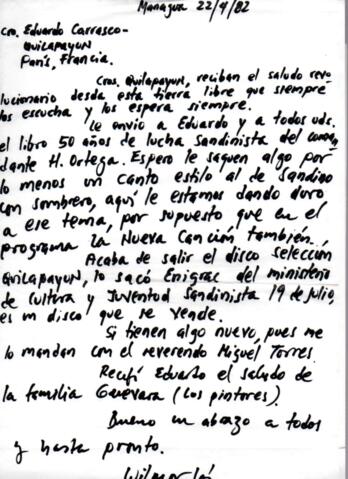 Managua 22/9/82
Cro. Eduardo Carrasco-
QUILAPAYUN
París, Francia.
Cros. Quilapayun, reciban el saludo revo
lucionario desde esta tierra libre que siempre
los escucha y los espera siempre.
Le envío a Eduardo y a todos uds.
el libro 50 años de lucha Sandinista del coman
dante H. Ortega. Espero le saquen algo por
lo menos un canto estilo al de Sandino
con sombrero, aquí le estamos dando duro
a ese tema, por supuesto que en el
programa la Nueva Canción también.
Acaba de salir el disco selección
QUILAPAYUN, lo sacó Enigrac del ministerio
de cultura y Juventud Sandinista 19 de julio,
es un disco que se vende.
Si tienen algo nuevo, pues me
lo mandan con el reverendo Miguel Torres.
Recifí Eduardo el saludo de
la familia Guevara (los pintores).
Bueno un abrazo a todos
y hasta pronto.